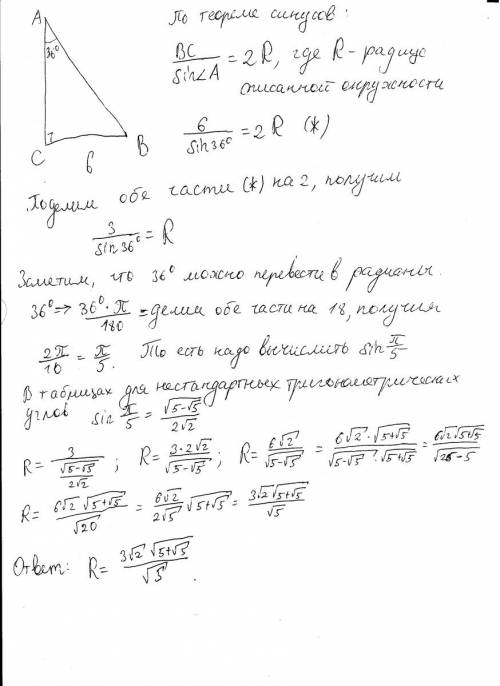 A
36°
C
6
B
По теореме синусов:
BC/sin∠A = 2R, где R - радиус
описанной окружности
6/sin36° = 2R (*)
Поделим обе части (*) на 2, получим
3/sin36° = R
Заметим, что 36° можно перевести в радианы.
36° ⇒ 36°·π/180 = делим обе части на 18, получим
2π/10 = π/5. То есть надо вычислить sin π/5
В таблицах для нестандартных тригонометрических
углов sin π/5 = √(5-√5)/(2√2)
R = 3/(√(5-√5)/(2√2)); R = 3·2√2/√(5-√5); R = 6√2/√(5-√5) = 6√2·√(5+√5)/(√(5-√5)·√(5+√5)) = 6√2√(5+√5)/√(25-5)
R = 6√2·√(5+√5)/√20 = 6√2/(2√5) √(5+√5) = 3√2√(5+√5)/√5
Ответ: R = 3√2·√(5+√5)/√5.